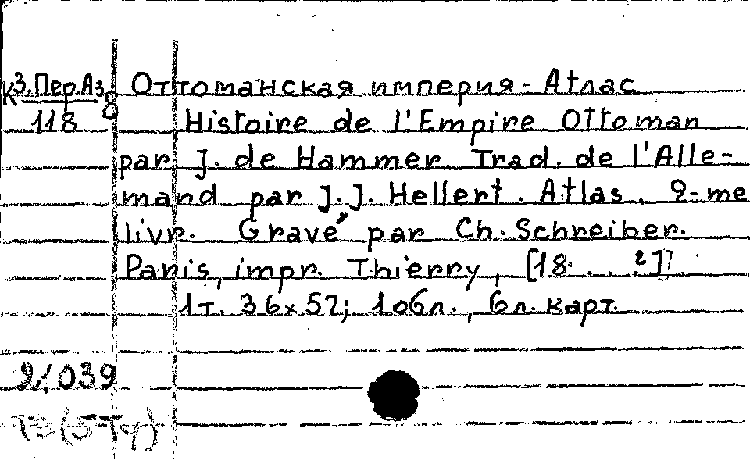 К 3.Пер.Аз. 8
118
Оттоманская империя - Атлас
Histoire de l'Empire Ottoman
par J. de Hammer. Trad. de l'Alle-
mand par J.J. Hellert. Atlas. 2-me
livr. Gravé par Ch. Schreiber.
Paris, impr. Thierry, [18. . . ?]
1т. 36x52; 1 обл., 6л. карт.
21039
Т3(5Ту)